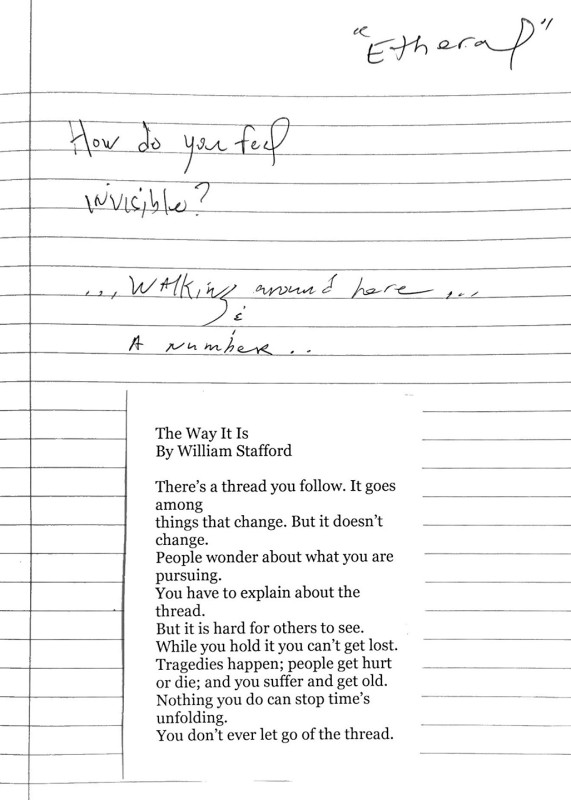 "Etheral"
How do you feel
invisible?
... Walking around here ...
&
A number..
The Way It Is
By William Stafford
There's a thread you follow. It goes
among
things that change. But it doesn't
change.
People wonder about what you are
pursuing.
You have to explain about the
thread.
But it is hard for others to see.
While you hold it you can't get lost.
Tragedies happen; people get hurt
or die; and you suffer and get old.
Nothing you do can stop time's
unfolding.
You don't ever let go of the thread.